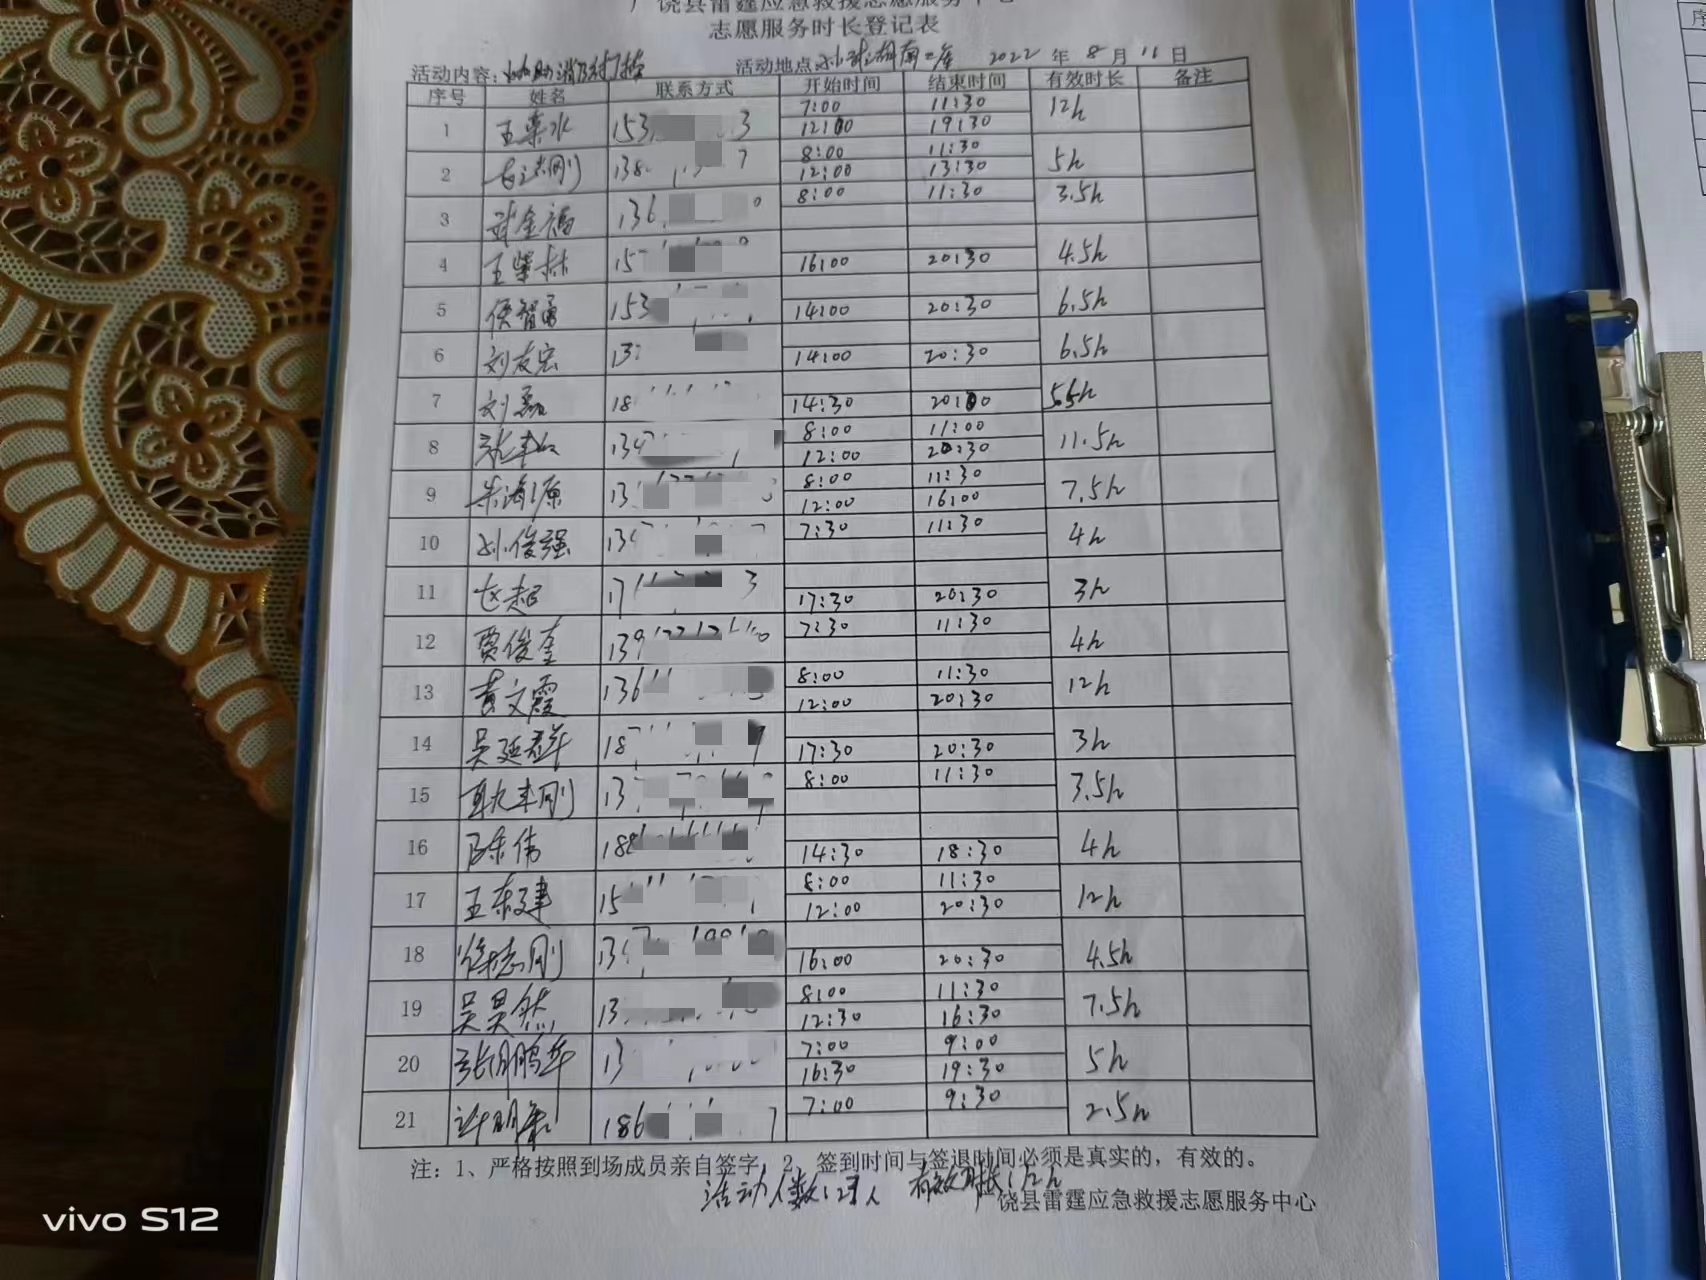 广饶县雷霆应急救援志愿服务中心
志愿服务时长登记表
活动内容：协助消防打捞 活动地点 孙武湖南二库 2022 年 8 月 11 日
序号 姓名 联系方式 开始时间 结束时间 有效时长 备注
1 王荣水 153 3 7:00 11:30 12h
12:00 19:30
2 138 7 8:00 11:30 5h
12:00 13:30
3 武金福 136 8:00 11:30 3.5h
4 王紫林 15 16:00 20:30 4.5h
5 侯智勇 153 14:00 20:30 6.5h
6 刘友宏 13 14:00 20:30 6.5h
7 刘磊 18 14:30 20:00 5.5h
8 134 8:00 11:00 11.5h
12:00 20:30
9 朱海源 13 8:00 11:30 7.5h
12:00 16:00
10 孙俊强 139 7:30 11:30 4h
11 赵超 17 3 17:30 20:30 3h
12 贾俊奎 139 7:30 11:30 4h
13 黄文霞 136 8:00 11:30 12h
12:00 20:30
14 吴延群 18 17:30 20:30 3h
15 13 8:00 11:30 3.5h
16 陈伟 188 14:30 18:30 4h
17 王东建 15 8:00 11:30 12h
12:00 20:30
18 徐志刚 13 16:00 20:30 4.5h
19 吴昊然 13 8:00 11:30 7.5h
12:30 16:30
20 张鹏华 13 7:00 9:00 5h
16:30 19:30
21 许明 186 7 7:00 9:30 2.5h
注：1、严格按照到场成员亲自签字，2、签到时间与签退时间必须是真实的，有效的。
活动人数：21人 有效时长：12h
广饶县雷霆应急救援志愿服务中心
vivo S12